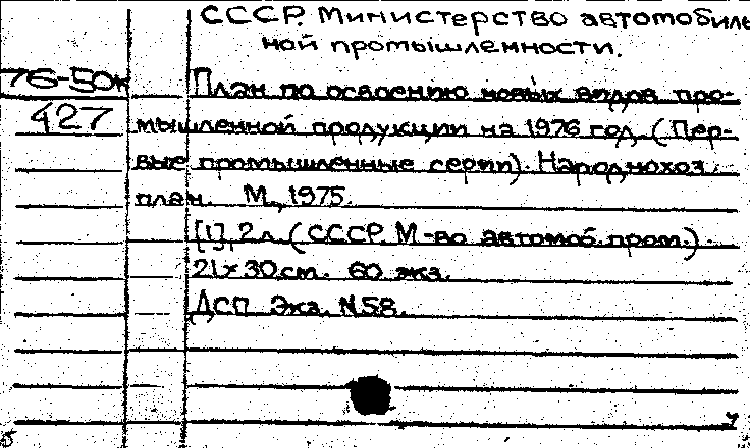 СССР. Министерство автомобиль
ной промышленности.
76-50к План по освоению новых видов про-
427 мышленной продукции на 1976 год. (Пер-
вые промышленные серии). Народнохоз.
план. М., 1975.
[1], 2 л. (СССР. М-во автомоб. пром.).
21×30 см. 60 экз.
ДСП Экз. N58.